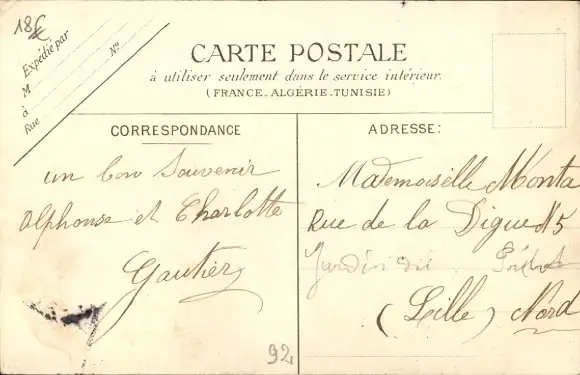 18€
Expédié par
M
à
Rue
No
CARTE POSTALE
à utiliser seulement dans le service intérieur.
(FRANCE-ALGÉRIE-TUNISIE)
CORRESPONDANCE
un bon souvenir
Alphonse et Charlotte
Gautier
92
ADRESSE:
Mademoiselle Monta
Rue de la Digue N5
Jardin du
(Lille) Nord